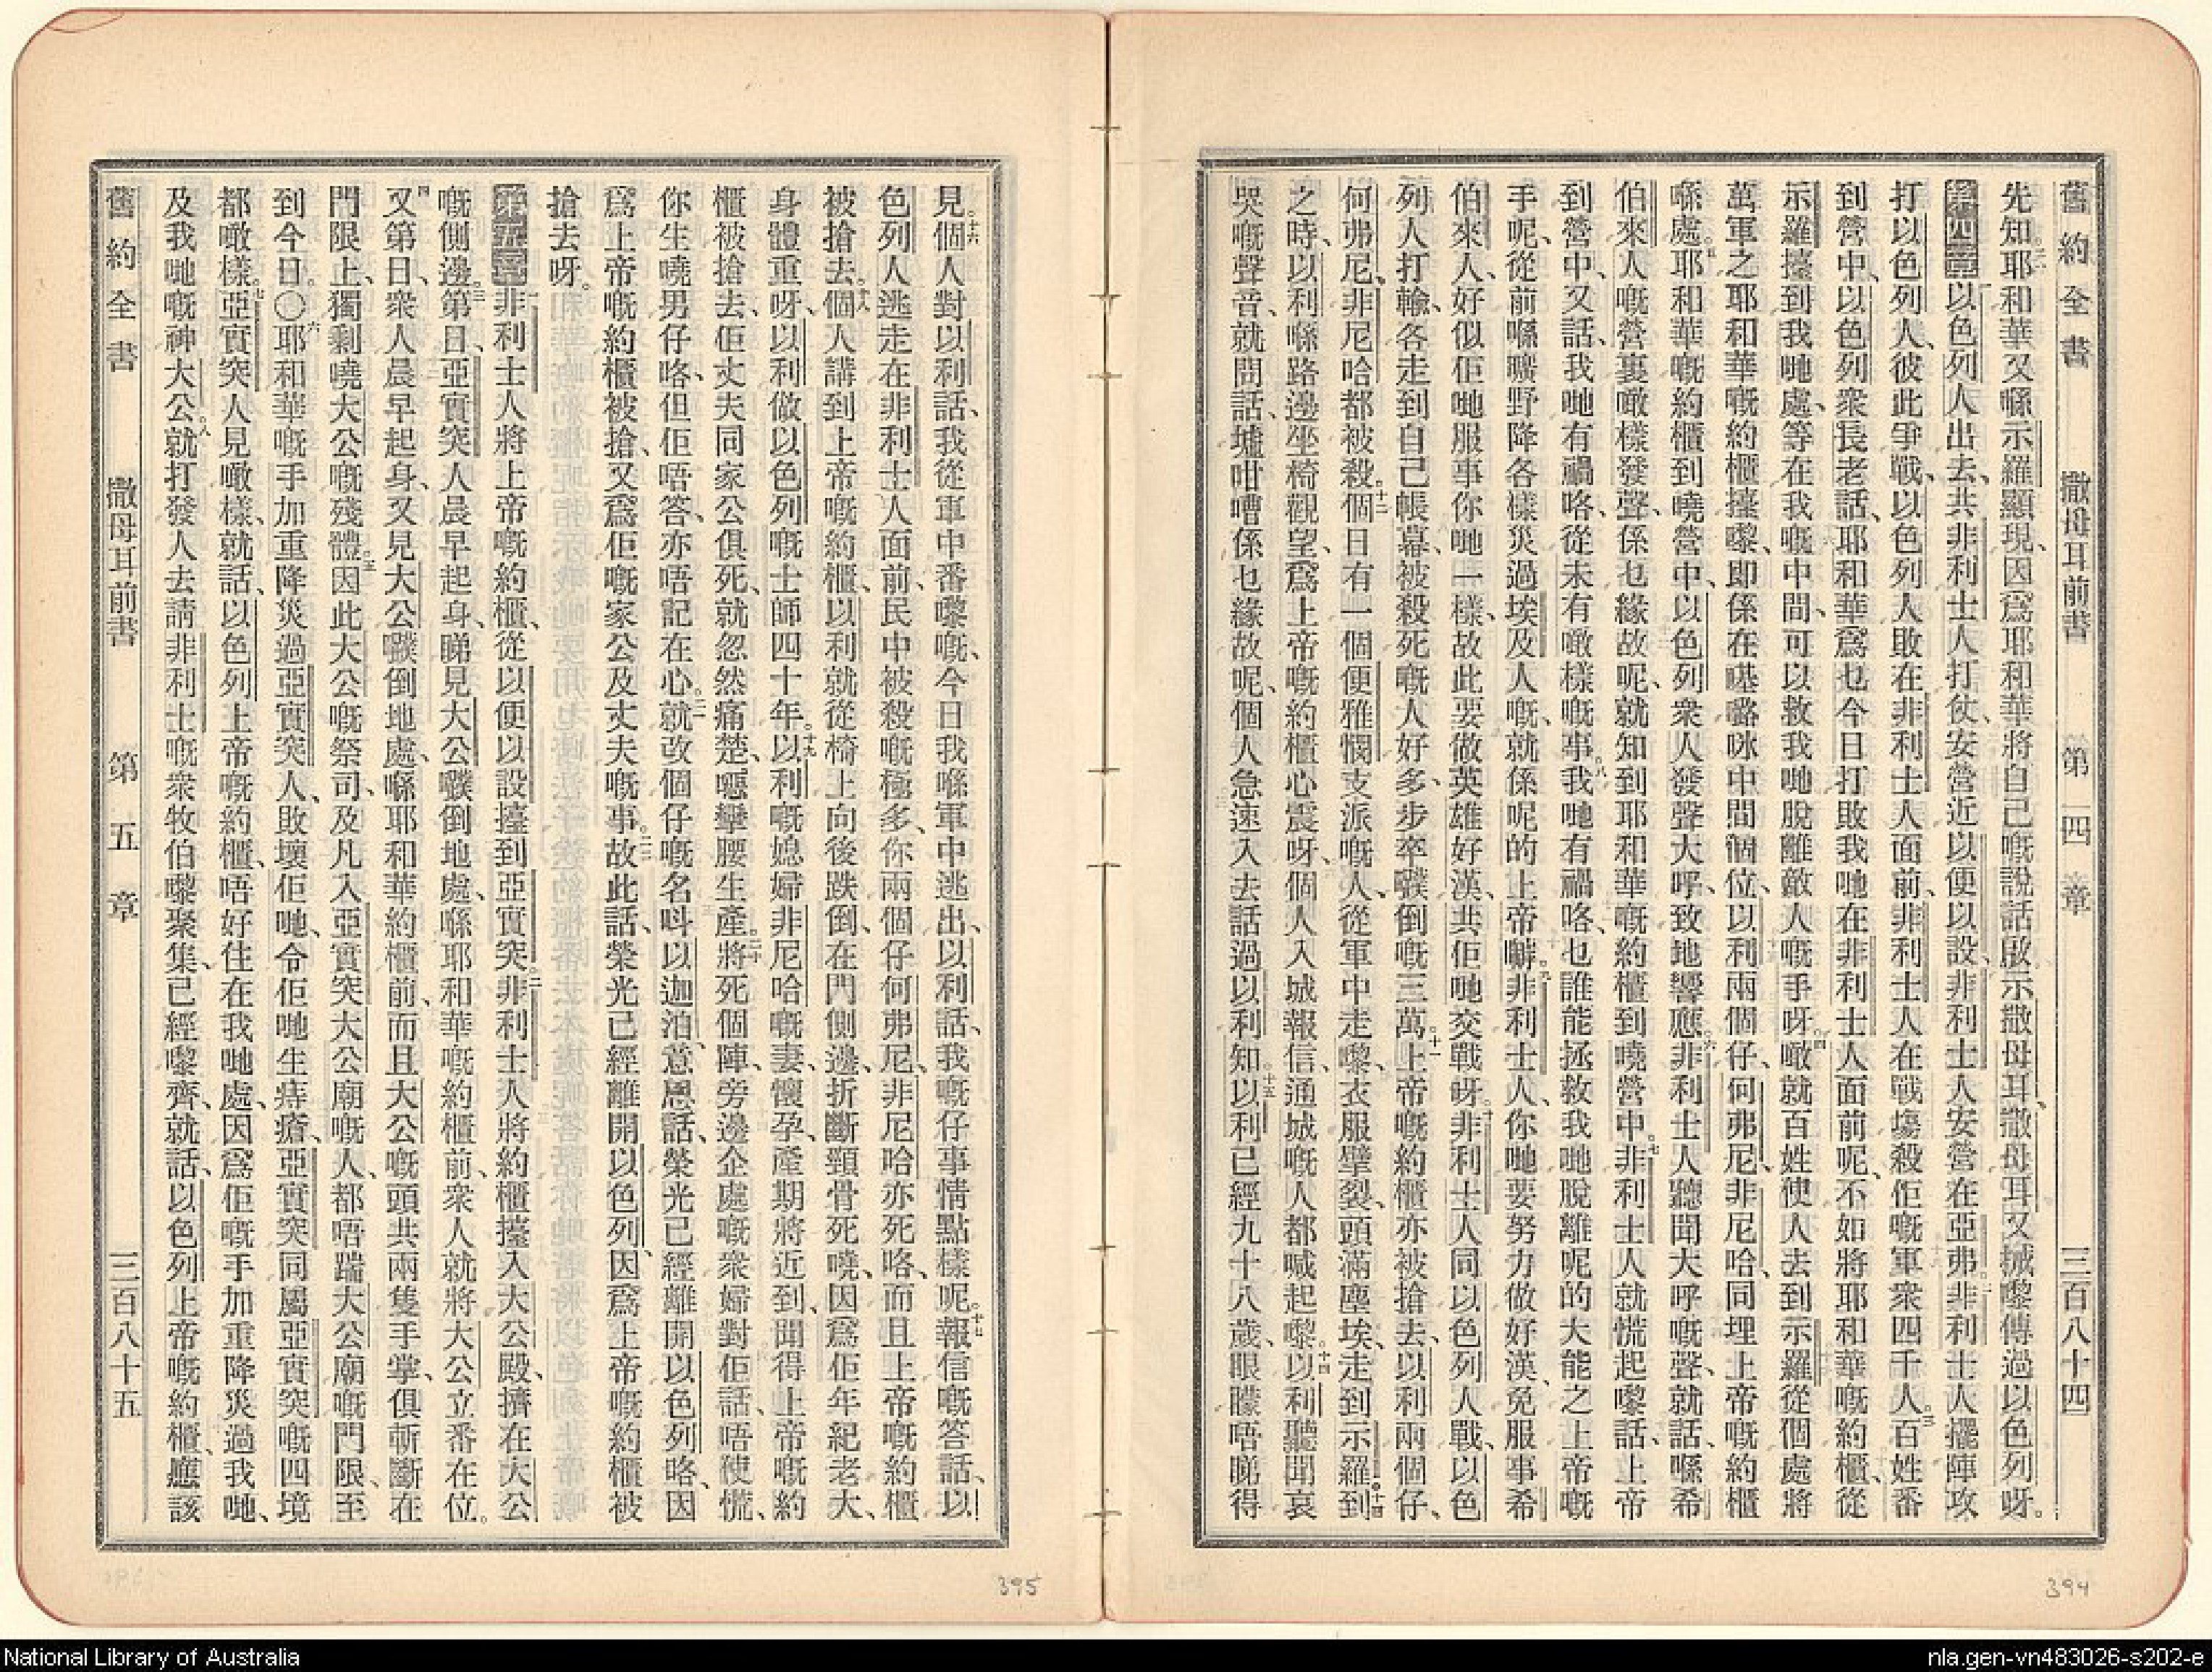 舊約全書 撒母耳前書 第四章 三百八十四
先知。耶和華又喺示羅顯現、因爲耶和華將自己嘅說話啟示撒母耳、撒母耳又搣嚟傳過以色列呀。
第四章 以色列人出去、共非利士人打仗、安營近以便以設、非利士人安營在亞弗。非利士人擺陣攻
打以色列人、彼此爭戰、以色列人敗在非利士人面前、非利士人在戰塲殺佢嘅軍衆四千人。百姓番
到營中、以色列衆長老話、耶和華爲乜今日打敗我哋在非利士人面前呢、不如將耶和華嘅約櫃、從
示羅擡到我哋處、等在我嘅中間、可以救我哋脫離敵人嘅手呀。噉就百姓使人去到示羅從個處將
萬軍之耶和華嘅約櫃擡嚟、即係在𠼻㘔咏中間個位、以利兩個仔、何弗尼、非尼哈、同埋上帝嘅約櫃
喺處。耶和華嘅約櫃到曉營中、以色列衆人發聲大呼、致地響應。非利士人聽聞大呼嘅聲、就話、喺希
伯來人嘅營裏噉樣發聲、係乜緣故呢、就知到耶和華嘅約櫃到曉營中。非利士人就慌起嚟話、上帝
到營中、又話、我哋有禍咯、從未有噉樣嘅事。我哋有禍咯、乜誰能拯救我哋脫離呢的大能之上帝嘅
手呢、從前喺曠野降各樣災過埃及人嘅、就係呢的上帝嚹。非利士人、你哋要努力做好漢、免服事希
伯來人、好似佢哋服事你哋一樣、故此要做英雄好漢、共佢哋交戰呀。非利士人同以色列人戰、以色
列人打輸、各走到自己帳幕、被殺死嘅人好多、步卒䠆倒嘅三萬。上帝嘅約櫃亦被搶去、以利兩個仔、
何弗尼、非尼哈都被殺。個日有一個便雅憫支派嘅人、從軍中走嚟、衣服擘裂、頭滿塵埃、走到示羅。到
之時、以利喺路邊坐椅觀望、爲上帝嘅約櫃心震呀、個人入城報信、通城嘅人都喊起嚟。以利聽聞哀
哭嘅聲音、就問話、墟咁嘈係乜緣故呢、個人急速入去話過以利知。以利已經九十八歲、眼矇唔睇得
見。個人對以利話、我從軍中番嚟嘅、今日我喺軍中逃出、以利話、我嘅仔事情點樣呢。報信嘅答話、以
色列人逃走在非利士人面前、民中被殺嘅極多、你兩個仔何弗尼、非尼哈亦死咯、而且上帝嘅約櫃
被搶去。個人講到上帝嘅約櫃、以利就從椅上向後跌倒、在門側邊、折斷頸骨死曉、因爲佢年紀老大、
身體重呀、以利做以色列嘅士師四十年。以利嘅媳婦非尼哈嘅妻、懷孕、產期將近到、聞得上帝嘅約
櫃被搶去、佢丈夫同家公俱死、就忽然痛楚、嗯攣腰生產。將死個陣、旁邊企處嘅衆婦對佢話、唔使慌、
你生曉男仔咯、但佢唔答、亦唔記在心。就改個仔嘅名呌以迦泊、意思話、榮光已經離開以色列咯、因
爲上帝嘅約櫃被搶、又爲佢嘅家公及丈夫嘅事。故此話、榮光已經離開以色列、因爲上帝嘅約櫃被
搶去呀。
第五章 非利士人將上帝嘅約櫃、從以便以設擡到亞實突。非利士人將約櫃擡入大公殿、擠在大公
嘅側邊。第日、亞實突人晨早起身、睇見大公䠆倒地處、喺耶和華嘅約櫃前、衆人就將大公立番在位。
又第日、衆人晨早起身、又見大公䠆倒地處、喺耶和華約櫃前、而且大公嘅頭共兩隻手掌、俱斬斷在
門限上、獨剩曉大公嘅殘體。因此大公嘅祭司、及凡入亞實突大公廟嘅人、都唔踹大公廟嘅門限、至
到今日。○耶和華嘅手加重降災過亞實突人、敗壞佢哋、令佢哋生痔瘡、亞實突同屬亞實突嘅四境
都噉樣。亞實突人見噉樣、就話、以色列上帝嘅約櫃、唔好住在我哋處、因爲佢嘅手加重降災過我哋、
及我哋嘅神大公。就打發人去請非利士嘅衆牧伯嚟聚集、已經嚟齊、就話、以色列上帝嘅約櫃、應該
舊約全書 撒母耳前書 第五章 三百八十五
395
394
National Library of Australia
nla.gen-vn483026-s202-e